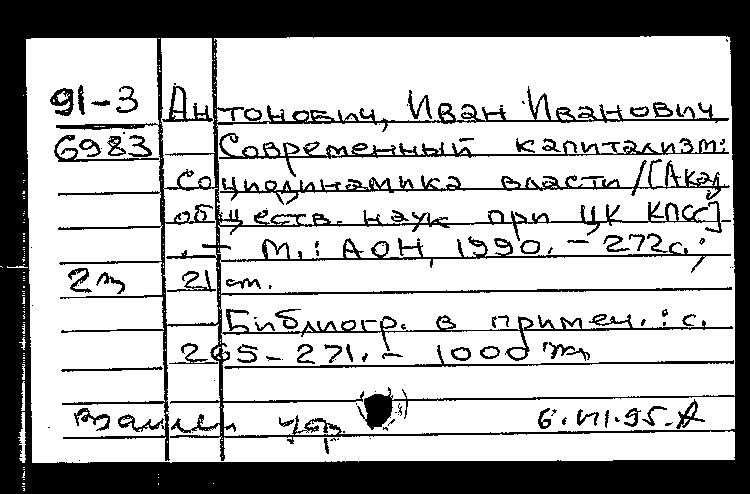 91-3 Антонович, Иван Иванович
6983 Современный капитализм:
социодинамика власти/[Акад.
обществ. наук при ЦК КПСС]
. - М.: АОН, 1990. - 272с.;
21 cm.
Библиогр. в примеч.: с.
265-271. - 1000
6.VII.95.